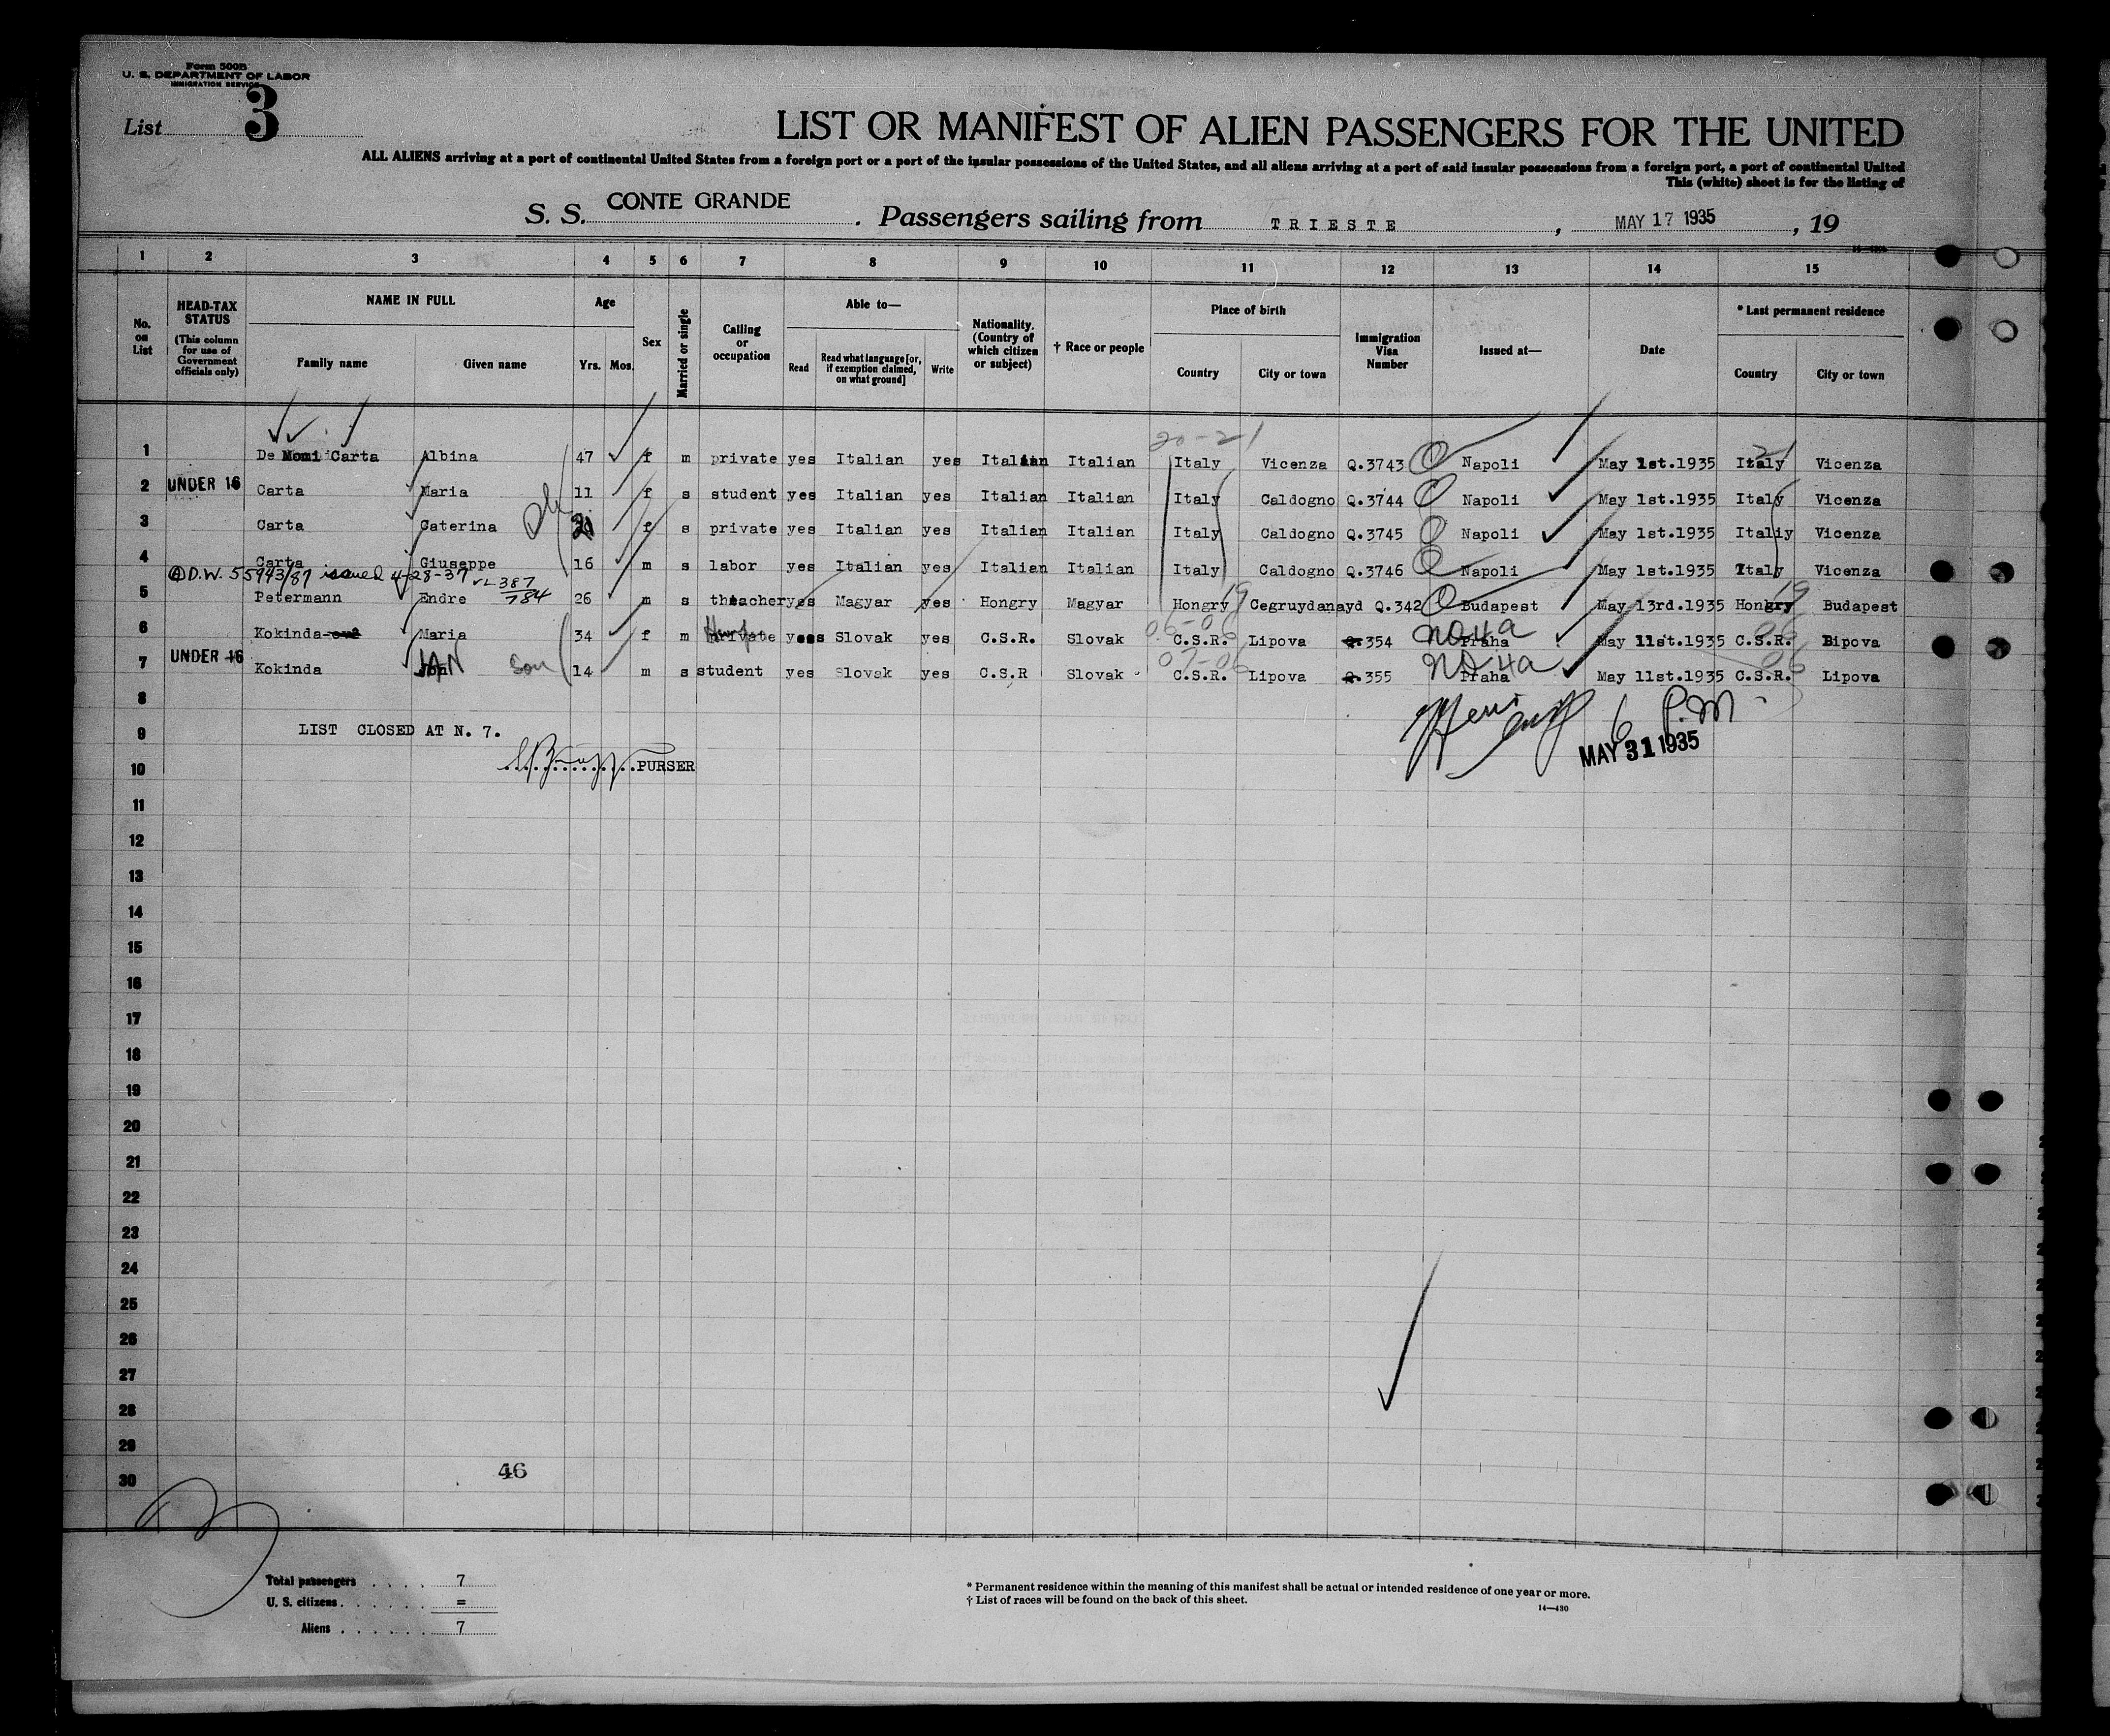 Form 500B
U. S. DEPARTMENT OF LABOR
IMMIGRATION SERVICE
List 3
LIST OR MANIFEST OF ALIEN PASSENGERS FOR THE UNITED
ALL ALIENS arriving at a port of continental United States from a foreign port or a port of the insular possessions of the United States, and all aliens arriving at a port of said insular possessions from a foreign port, a port of continental United
This (white) sheet is for the listing of
S. S. CONTE GRANDE . Passengers sailing from TRIESTE , MAY 17 1935 , 19
1 2 3 4 5 6 7 8 9 10 11 12 13 14 15
No. on List
HEAD-TAX STATUS (This column for use of Government officials only)
NAME IN FULL
Family name Given name
Age
Yrs. Mos.
Sex
Married or single
Calling or occupation
Able to—
Read Read what language [or, if exemption claimed, on what ground] Write
Nationality. (Country of which citizen or subject)
† Race or people
Place of birth
Country City or town
Immigration Visa Number
Issued at—
Date
* Last permanent residence
Country City or town
20-21 21
1 De Momi Carta Albina 47 f m private yes Italian yes Italian Italian Italy Vicenza Q.3743 Napoli May 1st.1935 Italy Vicenza
2 UNDER 16 Carta Maria 11 f s student yes Italian yes Italian Italian Italy Caldogno Q.3744 Napoli May 1st.1935 Italy Vicenza
3 Carta Caterina f s private yes Italian yes Italian Italian Italy Caldogno Q.3745 Napoli May 1st.1935 Italiy Vicenza
4 Carta Giuseppe 16 m s labor yes Italian yes Italian Italian Italy Caldogno Q.3746 Napoli May 1st.1935 Italy Vicenza
D.W. 55993/87 issued 4-28-37 VL 387/784
5 Petermann Endre 26 m s theacher yes Magyar yes Hongry Magyar Hongry 19 Cegruydanayd Q.342 Budapest May 13rd.1935 Hongry 19 Budapest
6 Kokinda Maria 34 f m private yees Slovak yes C.S.R. Slovak C.S.R. Lipova Q.354 NQ4a Praha May 11st.1935 C.S.R. Bipova
7 UNDER 16 Kokinda JAN son 14 m s student yes Slovak yes C.S.R Slovak C.S.R. Lipova Q.355 NQ4a Praha May 11st.1935 C.S.R. Lipova
8
9 LIST CLOSED AT N. 7.
6 P.M
MAY 31 1935
10 PURSER
11
12
13
14
15
16
17
18
19
20
21
22
23
24
25
26
27
28
29
30
46
Total passengers . . . . 7
U. S. citizens . . . . . . =
Aliens . . . . . . 7
* Permanent residence within the meaning of this manifest shall be actual or intended residence of one year or more.
† List of races will be found on the back of this sheet.
14—430